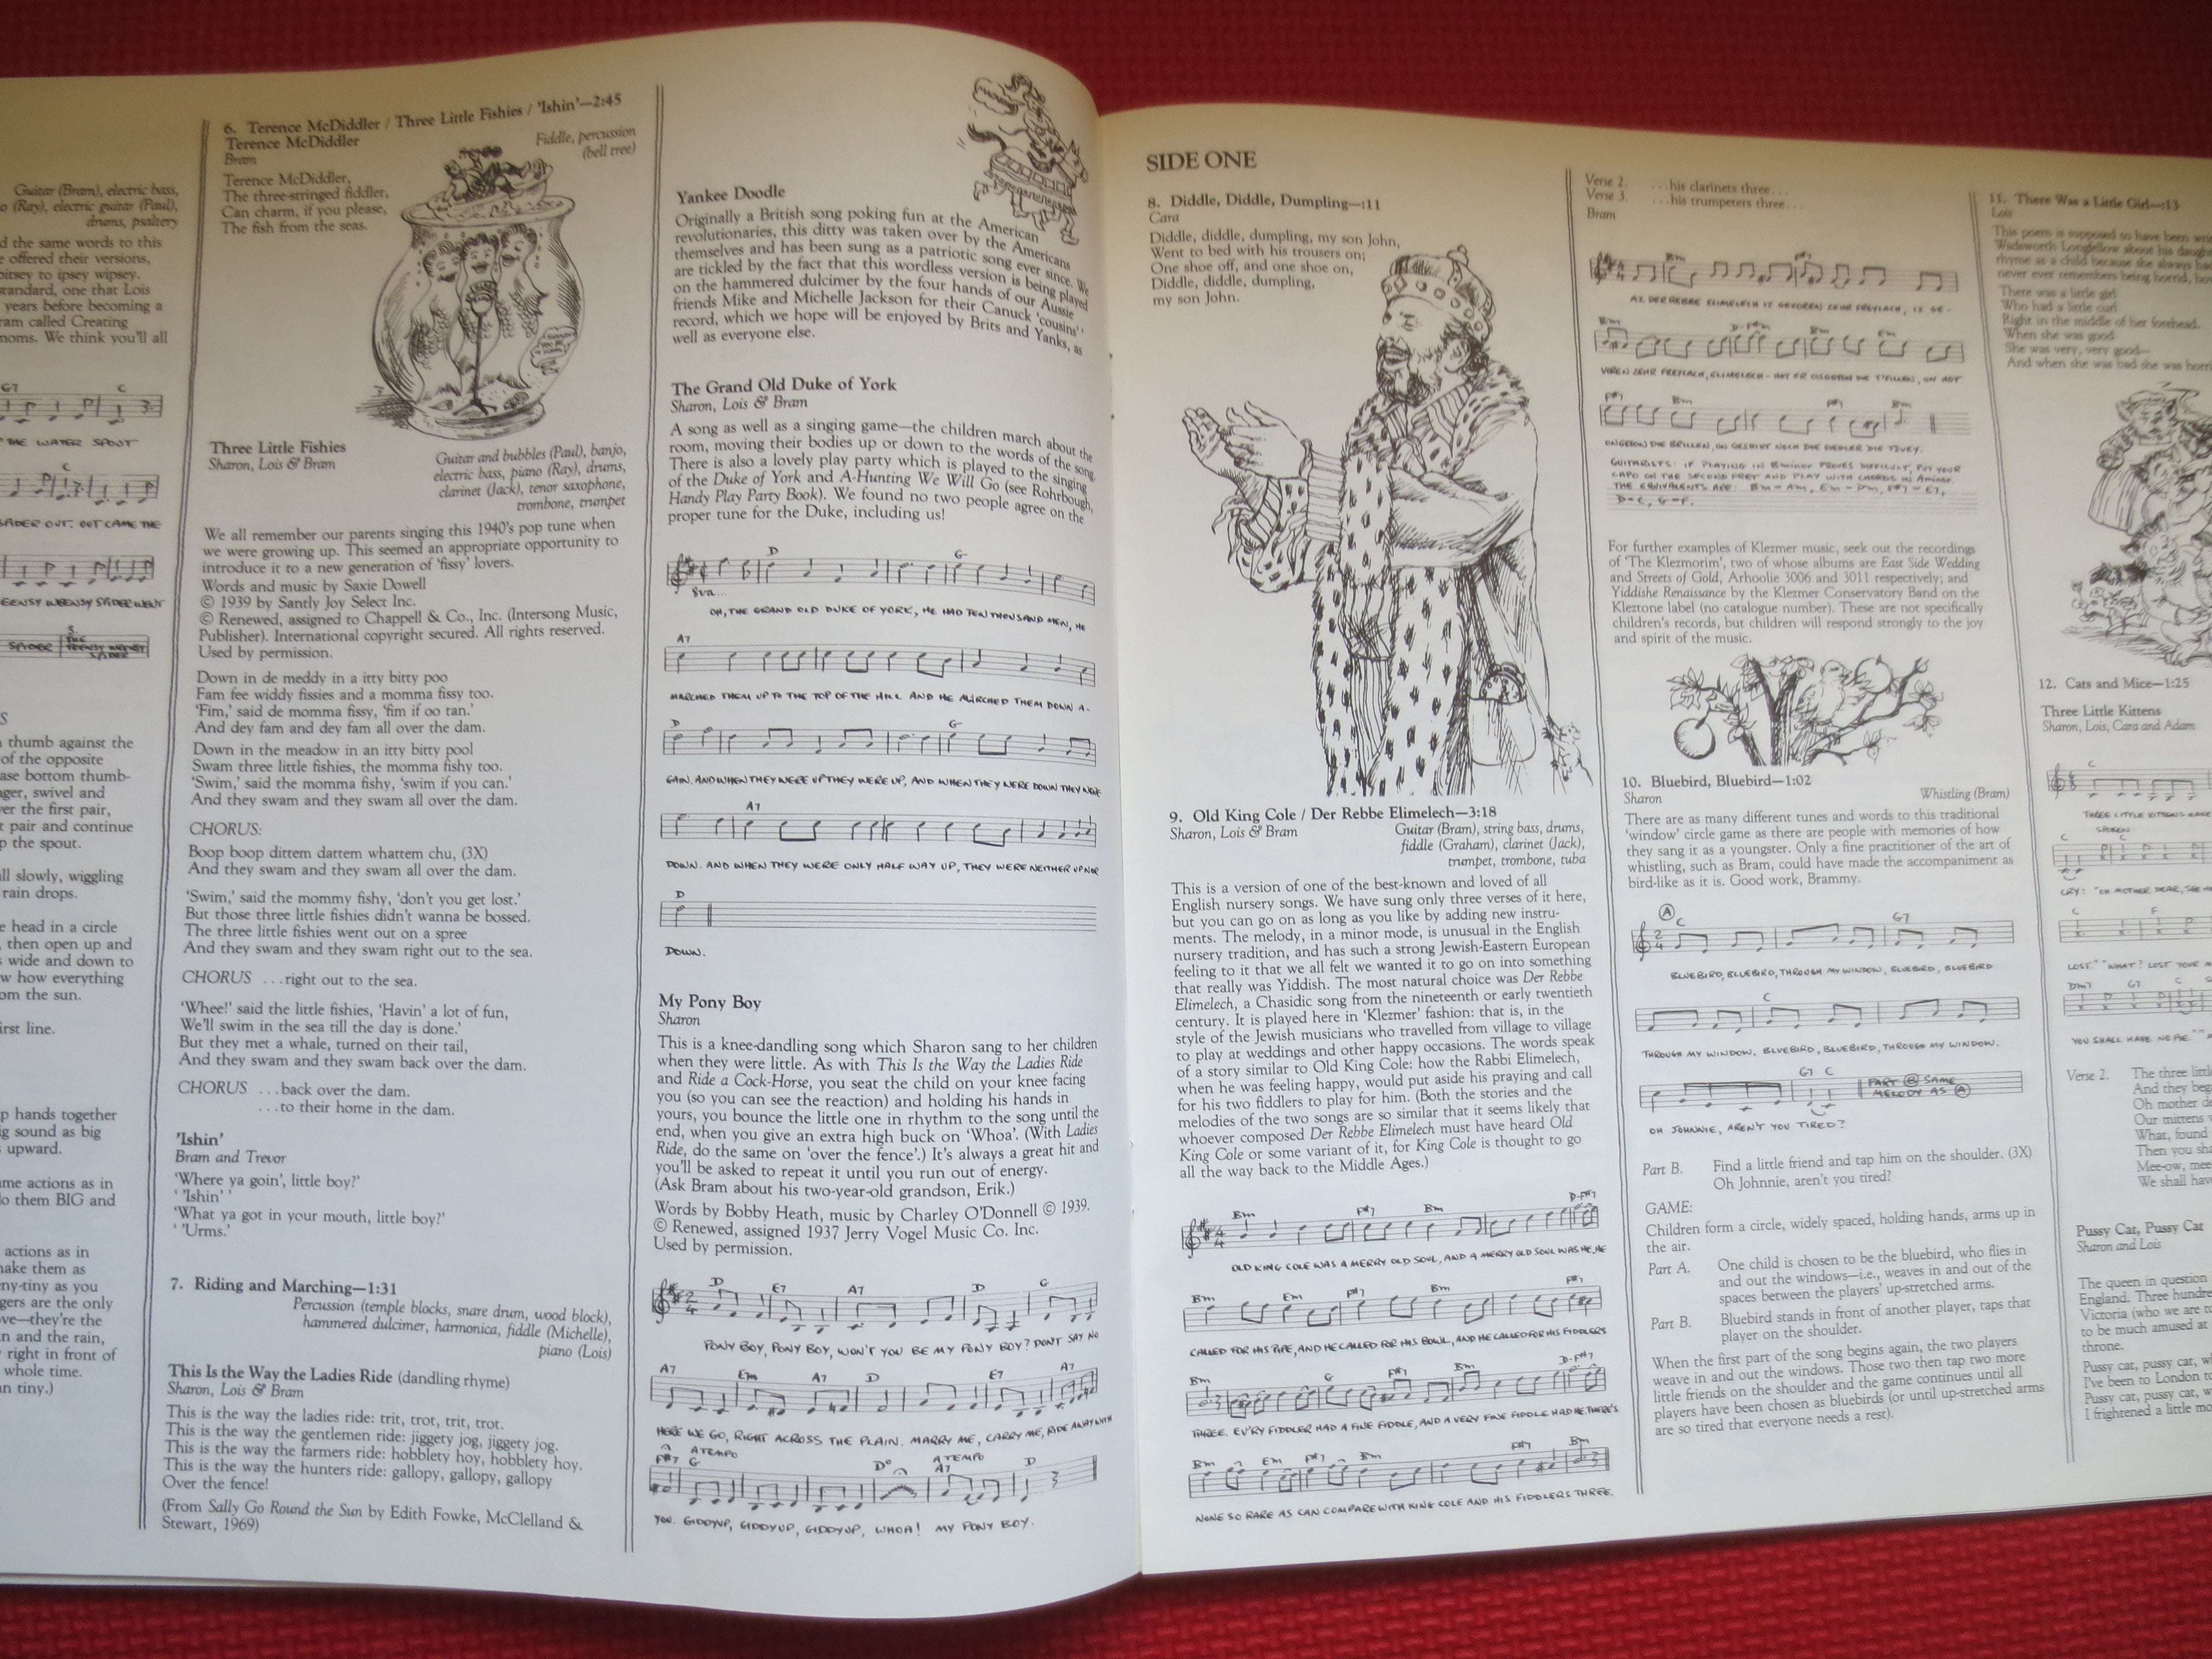 Guitar (Bram), electric bass,
(Ray), electric guitar (Paul),
drums, psaltery
d the same words to this
e offered their versions,
bitsey to ipsey wipsey.
standard, one that Lois
years before becoming a
ram called Creating
noms. We think you'll all
G7 C
THE WATER SPOUT
C
SPIDER OUT. OUT CAME THE
EENSY WEENSY SPIDER WENT
SPIDER
S
thumb against the
of the opposite
ase bottom thumb-
ger, swivel and
er the first pair,
t pair and continue
p the spout.
ll slowly, wiggling
rain drops.
e head in a circle
, then open up and
s wide and down to
w how everything
om the sun.
irst line.
p hands together
g sound as big
upward.
me actions as in
lo them BIG and
actions as in
make them as
eny-tiny as you
gers are the only
ove—they're the
n and the rain,
right in front of
whole time.
an tiny.)
6. Terence McDiddler / Three Little Fishies / 'Ishin'—2:45
Terence McDiddler
Bram
Fiddle, percussion
(bell tree)
Terence McDiddler,
The three-stringed fiddler,
Can charm, if you please,
The fish from the seas.
Three Little Fishies
Sharon, Lois & Bram
Guitar and bubbles (Paul), banjo,
electric bass, piano (Ray), drums,
clarinet (Jack), tenor saxophone,
trombone, trumpet
We all remember our parents singing this 1940's pop tune when
we were growing up. This seemed an appropriate opportunity to
introduce it to a new generation of 'fissy' lovers.
Words and music by Saxie Dowell
© 1939 by Santly Joy Select Inc.
© Renewed, assigned to Chappell & Co., Inc. (Intersong Music,
Publisher). International copyright secured. All rights reserved.
Used by permission.
Down in de meddy in a itty bitty poo
Fam fee widdy fissies and a momma fissy too.
'Fim,' said de momma fissy, 'fim if oo tan.'
And dey fam and dey fam all over the dam.
Down in the meadow in an itty bitty pool
Swam three little fishies, the momma fishy too.
'Swim,' said the momma fishy, 'swim if you can.'
And they swam and they swam all over the dam.
CHORUS:
Boop boop dittem dattem whattem chu, (3X)
And they swam and they swam all over the dam.
'Swim,' said the mommy fishy, 'don't you get lost.'
But those three little fishies didn't wanna be bossed.
The three little fishies went out on a spree
And they swam and they swam right out to the sea.
CHORUS ...right out to the sea.
'Whee!' said the little fishies, 'Havin' a lot of fun,
We'll swim in the sea till the day is done.'
But they met a whale, turned on their tail,
And they swam and they swam back over the dam.
CHORUS ...back over the dam.
...to their home in the dam.
'Ishin'
Bram and Trevor
'Where ya goin', little boy?'
' 'Ishin' '
'What ya got in your mouth, little boy?'
' 'Urms.'
7. Riding and Marching—1:31
Percussion (temple blocks, snare drum, wood block),
hammered dulcimer, harmonica, fiddle (Michelle),
piano (Lois)
This Is the Way the Ladies Ride (dandling rhyme)
Sharon, Lois & Bram
This is the way the ladies ride: trit, trot, trit, trot.
This is the way the gentlemen ride: jiggety jog, jiggety jog.
This is the way the farmers ride: hobblety hoy, hobblety hoy.
This is the way the hunters ride: gallopy, gallopy, gallopy
Over the fence!
(From Sally Go Round the Sun by Edith Fowke, McClelland &
Stewart, 1969)
Yankee Doodle
Originally a British song poking fun at the American
revolutionaries, this ditty was taken over by the Americans
themselves and has been sung as a patriotic song ever since. We
are tickled by the fact that this wordless version is being played
on the hammered dulcimer by the four hands of our Aussie
friends Mike and Michelle Jackson for their Canuck 'cousins''
record, which we hope will be enjoyed by Brits and Yanks, as
well as everyone else.
The Grand Old Duke of York
Sharon, Lois & Bram
A song as well as a singing game—the children march about the
room, moving their bodies up or down to the words of the song.
There is also a lovely play party which is played to the singing
of the Duke of York and A-Hunting We Will Go (see Rohrbough,
Handy Play Party Book). We found no two people agree on the
proper tune for the Duke, including us!
D G
8va...
OH, THE GRAND OLD DUKE OF YORK, HE HAD TEN THOUSAND MEN, HE
A7
MARCHED THEM UP TO THE TOP OF THE HILL AND HE MARCHED THEM DOWN A-
D G
GAIN. AND WHEN THEY WERE UP THEY WERE UP, AND WHEN THEY WERE DOWN THEY WERE
A7
DOWN. AND WHEN THEY WERE ONLY HALF WAY UP, THEY WERE NEITHER UP NOR
D
DOWN.
My Pony Boy
Sharon
This is a knee-dandling song which Sharon sang to her children
when they were little. As with This Is the Way the Ladies Ride
and Ride a Cock-Horse, you seat the child on your knee facing
you (so you can see the reaction) and holding his hands in
yours, you bounce the little one in rhythm to the song until the
end, when you give an extra high buck on 'Whoa'. (With Ladies
Ride, do the same on 'over the fence'.) It's always a great hit and
you'll be asked to repeat it until you run out of energy.
(Ask Bram about his two-year-old grandson, Erik.)
Words by Bobby Heath, music by Charley O'Donnell © 1939.
© Renewed, assigned 1937 Jerry Vogel Music Co. Inc.
Used by permission.
D E7 A7 D G
PONY BOY, PONY BOY, WON'T YOU BE MY PONY BOY? DON'T SAY NO
A7 Em A7 D E7 A7
HERE WE GO, RIGHT ACROSS THE PLAIN. MARRY ME, CARRY ME, RIDE AWAY WITH
F#7 G A TEMPO D° A TEMPO A7 D
YOU. GIDDYUP, GIDDYUP, GIDDYUP, WHOA! MY PONY BOY.
SIDE ONE
8. Diddle, Diddle, Dumpling—:11
Cara
Diddle, diddle, dumpling, my son John,
Went to bed with his trousers on;
One shoe off, and one shoe on,
Diddle, diddle, dumpling,
my son John.
9. Old King Cole / Der Rebbe Elimelech—3:18
Sharon, Lois & Bram
Guitar (Bram), string bass, drums,
fiddle (Graham), clarinet (Jack),
trumpet, trombone, tuba
This is a version of one of the best-known and loved of all
English nursery songs. We have sung only three verses of it here,
but you can go on as long as you like by adding new instru-
ments. The melody, in a minor mode, is unusual in the English
nursery tradition, and has such a strong Jewish-Eastern European
feeling to it that we all felt we wanted it to go on into something
that really was Yiddish. The most natural choice was Der Rebbe
Elimelech, a Chasidic song from the nineteenth or early twentieth
century. It is played here in 'Klezmer' fashion: that is, in the
style of the Jewish musicians who travelled from village to village
to play at weddings and other happy occasions. The words speak
of a story similar to Old King Cole: how the Rabbi Elimelech,
when he was feeling happy, would put aside his praying and call
for his two fiddlers to play for him. (Both the stories and the
melodies of the two songs are so similar that it seems likely that
whoever composed Der Rebbe Elimelech must have heard Old
King Cole or some variant of it, for King Cole is thought to go
all the way back to the Middle Ages.)
Bm F#7 Bm D-F#7
OLD KING COLE WAS A MERRY OLD SOUL, AND A MERRY OLD SOUL WAS HE, HE
Bm Em F#7 Bm F#7
CALLED FOR HIS PIPE, AND HE CALLED FOR HIS BOWL, AND HE CALLED FOR HIS FIDDLERS
Bm G F#7 Bm D-F#7
THREE. EV'RY FIDDLER HAD A FINE FIDDLE, AND A VERY FINE FIDDLE HAD HE. THERE'S
Bm Em F#7 Bm F#7 Bm
NONE SO RARE AS CAN COMPARE WITH KING COLE AND HIS FIDDLERS THREE.
Verse 2. ...his clarinets three...
Verse 3. ...his trumpeters three...
Bram
Bm F#7
AZ DER REBBE ELIMELECH IZ GEVOREN ZEHR FREYLACH, IZ GE-
Bm D-F#m Bm Em
VOREN ZEHR FREYLACH, ELIMELECH - HOT ER
F#7 Bm F#7 Bm
DIE BRILLEN, UN GESHIKT NOCH DIE FIEDLER DIE TZVEY.
GUITARISTS: IF PLAYING IN B MINOR PROVES DIFFICULT, PUT YOUR
CAPO ON THE SECOND FRET AND PLAY WITH CHORDS IN A MINOR.
THE EQUIVALENTS ARE: Bm-Am, Em-Dm, F#7-E7,
D-C, G-F.
For further examples of Klezmer music, seek out the recordings
of 'The Klezmorim', two of whose albums are East Side Wedding
and Streets of Gold, Arhoolie 3006 and 3011 respectively; and
Yiddishe Renaissance by the Klezmer Conservatory Band on the
Kleztone label (no catalogue number). These are not specifically
children's records, but children will respond strongly to the joy
and spirit of the music.
10. Bluebird, Bluebird—1:02
Sharon
Whistling (Bram)
There are as many different tunes and words to this traditional
'window' circle game as there are people with memories of how
they sang it as a youngster. Only a fine practitioner of the art of
whistling, such as Bram, could have made the accompaniment as
bird-like as it is. Good work, Brammy.
A C G7
BLUEBIRD, BLUEBIRD, THROUGH MY WINDOW, BLUEBIRD, BLUEBIRD
C
THROUGH MY WINDOW. BLUEBIRD, BLUEBIRD, THROUGH MY WINDOW.
G7 C
PART B SAME
MELODY AS A
OH JOHNNIE, AREN'T YOU TIRED?
Part B. Find a little friend and tap him on the shoulder. (3X)
Oh Johnnie, aren't you tired?
GAME:
Children form a circle, widely spaced, holding hands, arms up in
the air.
Part A. One child is chosen to be the bluebird, who flies in
and out the windows—i.e., weaves in and out of the
spaces between the players' up-stretched arms.
Part B. Bluebird stands in front of another player, taps that
player on the shoulder.
When the first part of the song begins again, the two players
weave in and out the windows. Those two then tap two more
little friends on the shoulder and the game continues until all
players have been chosen as bluebirds (or until up-stretched arms
are so tired that everyone needs a rest).
11. There Was a Little Girl—:13
Lois
This poem is supposed to have been writ
Wadsworth Longfellow about his daught
rhyme as a child because she always ha
never ever remembers being horrid, ho
There was a little girl
Who had a little curl
Right in the middle of her forehead.
When she was good
She was very, very good—
And when she was bad she was horri
12. Cats and Mice—1:25
Three Little Kittens
Sharon, Lois, Cara and Adam
C
THREE LITTLE KITTENS
SPOKEN
C C
CRY: "OH MOTHER DEAR, SEE H
C F
LOST." "WHAT? LOST YOUR M
Dm7 G7 C
YOU SHALL HAVE NO PIE."
Verse 2. The three littl
And they beg
Oh mother de
Our mittens w
What, found
Then you sha
Mee-ow, mee
We shall hav
Pussy Cat, Pussy Cat
Sharon and Lois
The queen in question
England. Three hundre
Victoria (who we are to
to be much amused at
throne.
Pussy cat, pussy cat, w
I've been to London to
Pussy cat, pussy cat, w
I frightened a little mo